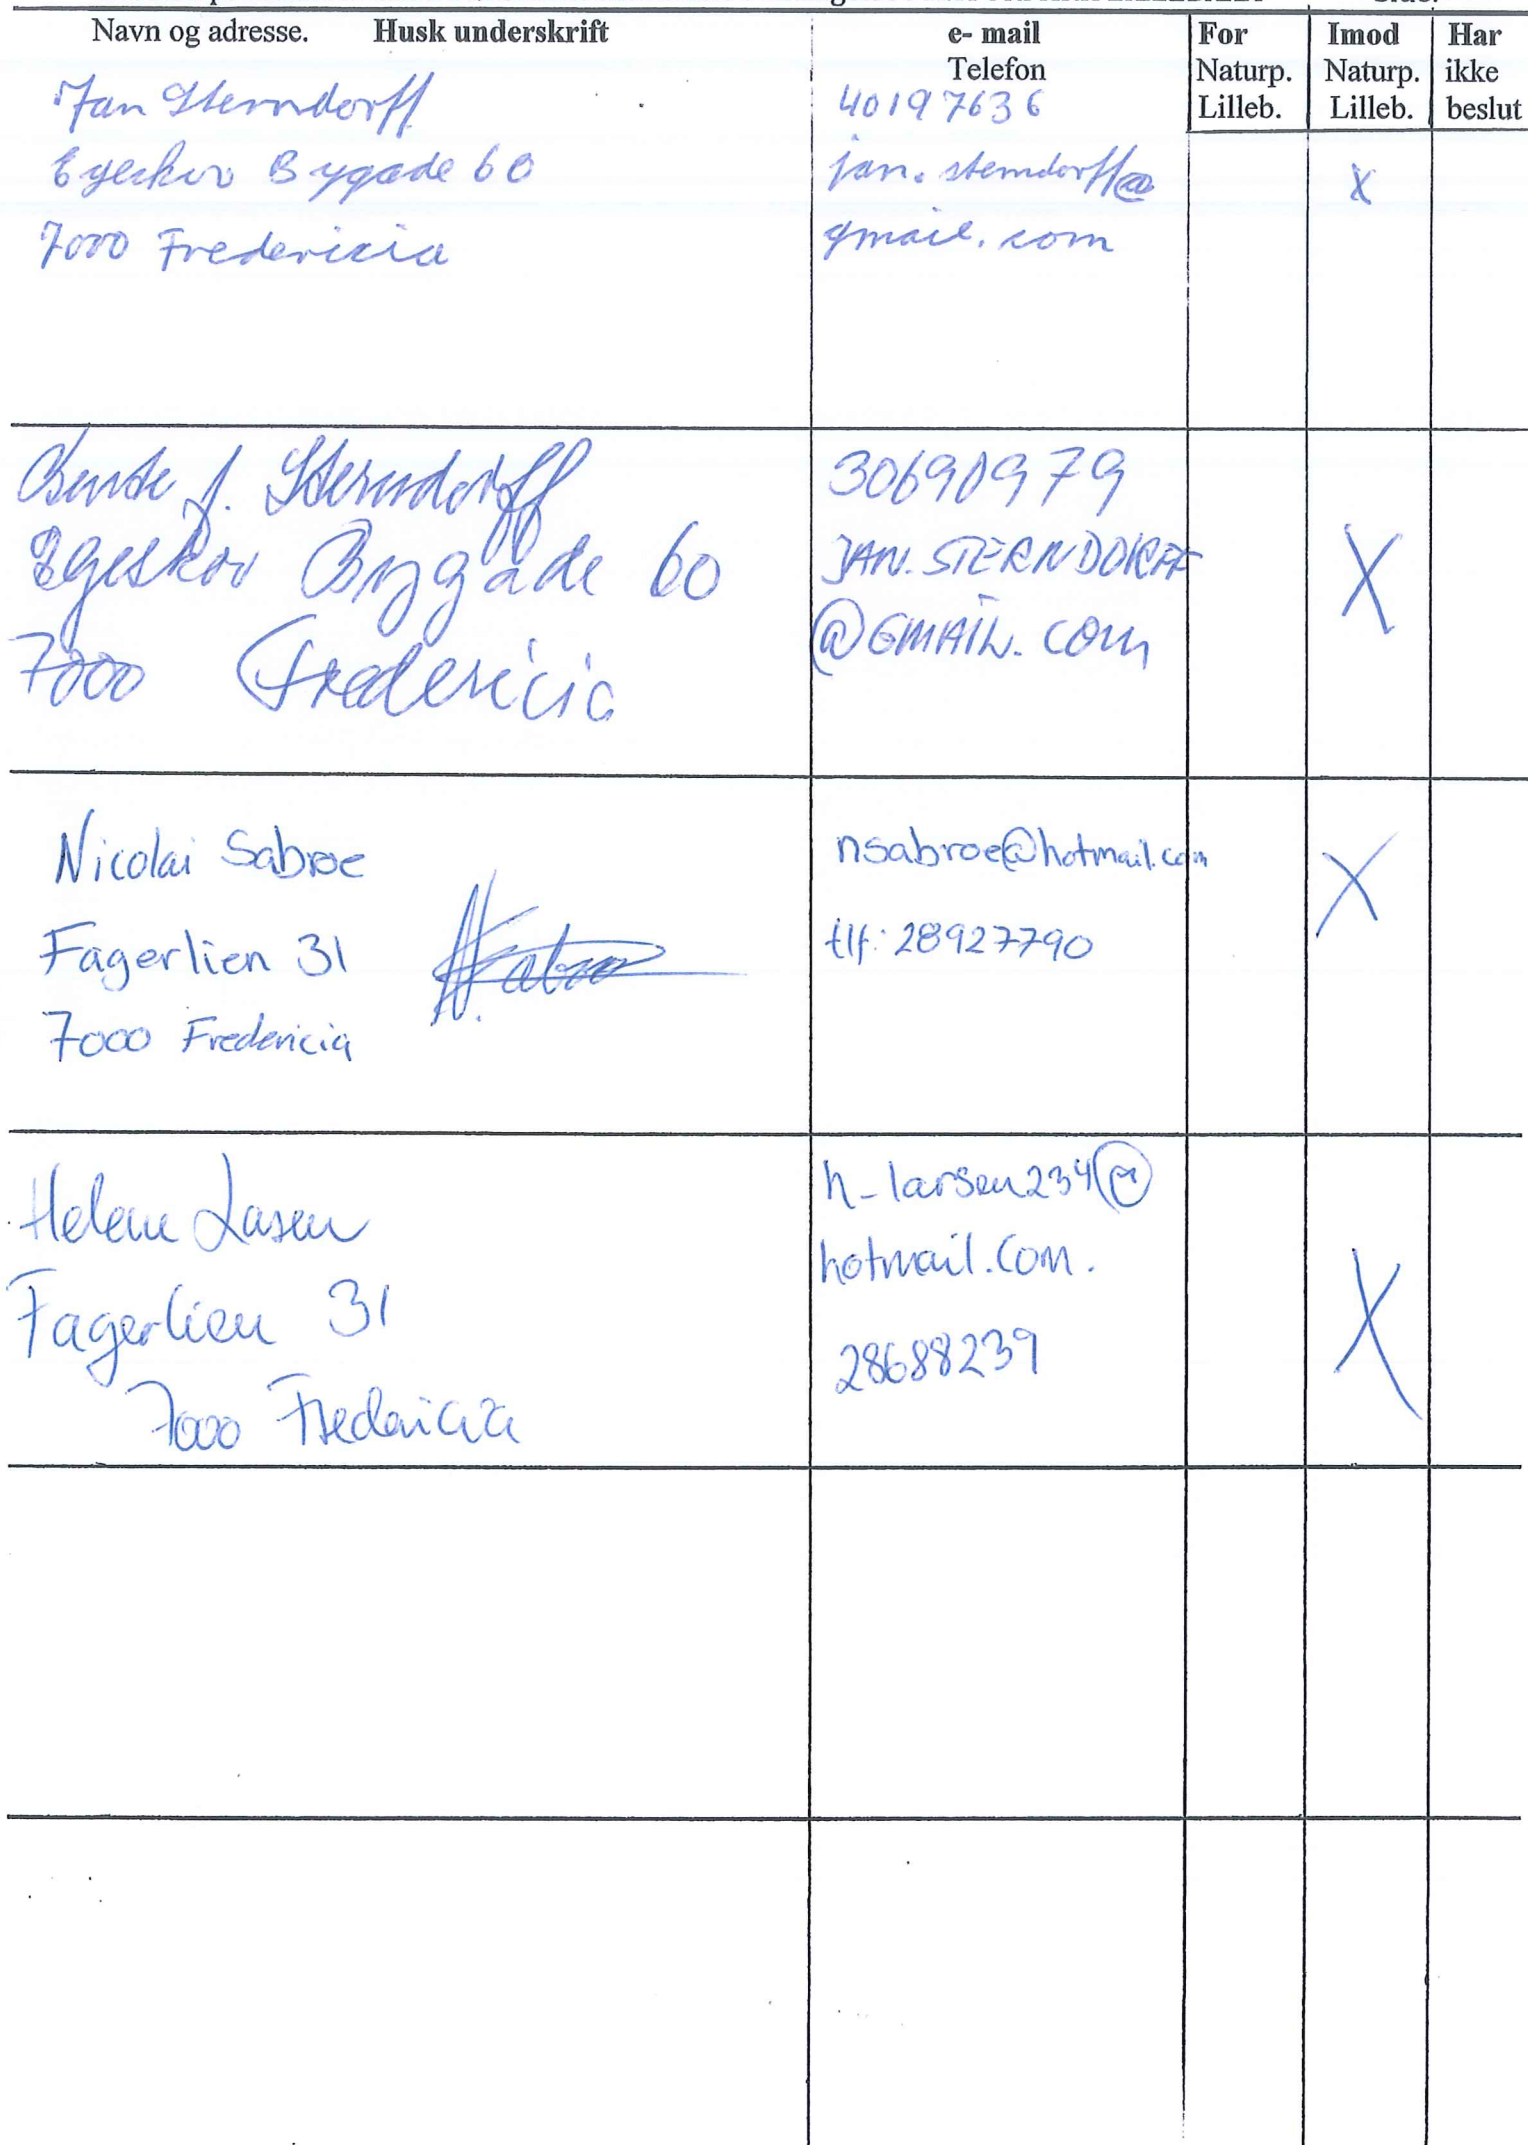 Navn og adresse. Husk underskrift
e- mail
Telefon
For
Naturp.
Lilleb.
Imod
Naturp.
Lilleb.
Har
ikke
beslut
Jan Sterndorff
Egeskov Bygade 60
7000 Fredericia
40197636
jan.sterndorff@
gmail.com
X
Bente J. Sterndorff
Egeskov Bygade 60
7000 Fredericia
30690979
JAN.STERNDORFF
@GMAIL.COM
X
Nicolai Sabroe
Fagerlien 31
7000 Fredericia
nsabroe@hotmail.com
tlf: 28927790
X
Helene Larsen
Fagerlien 31
7000 Fredericia
h_larsen234@
hotmail.com.
28688239
X